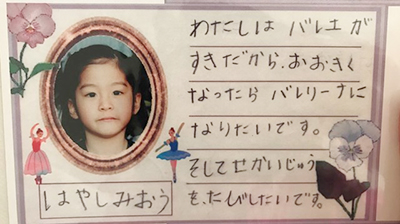 わたしは バレエが
すきだから、おおきく
なったら バレリーナに
なりたいです。
そしてせかいじゅう
を、たびしたいです。
はやしみおう